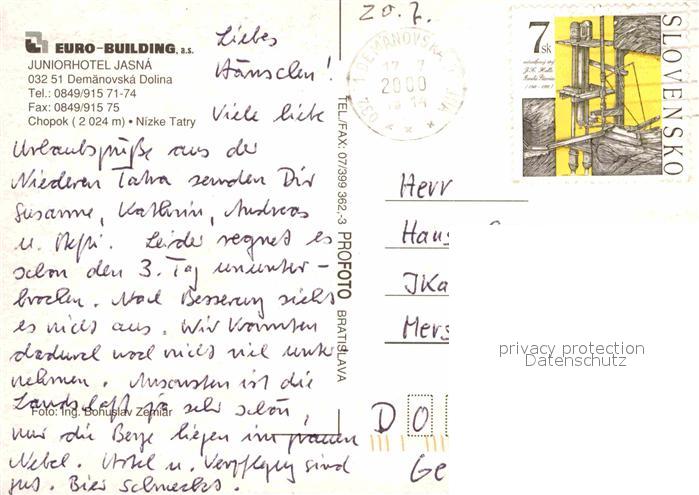 20.7.
EURO-BUILDING, a.s.
JUNIORHOTEL JASNÁ
032 51 Demänovská Dolina
Tel.: 0849/915 71-74
Fax: 0849/915 75
Chopok ( 2 024 m) • Nízke Tatry
Liebes
Hänschen!
Viele liebe
Urlaubsgrüße aus der
Niederen Tatra senden Dir
Susanne, Kathrin, Andreas
u. Leider regnet es
schon den 3. Tag ununter-
brochen. Nach Besserung sieht
es nicht aus. Wir konnten
dadurch noch nicht viel unter
nehmen. Ansonsten ist die
Landschaft ja sehr schön,
nur die Berge liegen im grauen
Nebel. Hotel u. Verpflegung sind
gut. Bier schmeckt.
Foto: Ing. Bohuslav Zemiar
TEL/FAX: 07/399 362,-3 PROFOTO BRATISLAVA
DEMÄNOVSKÁ
2000
7 sk
SLOVENSKO
Herr
Hans
Mers
privacy protection
Datenschutz
D O
Ge